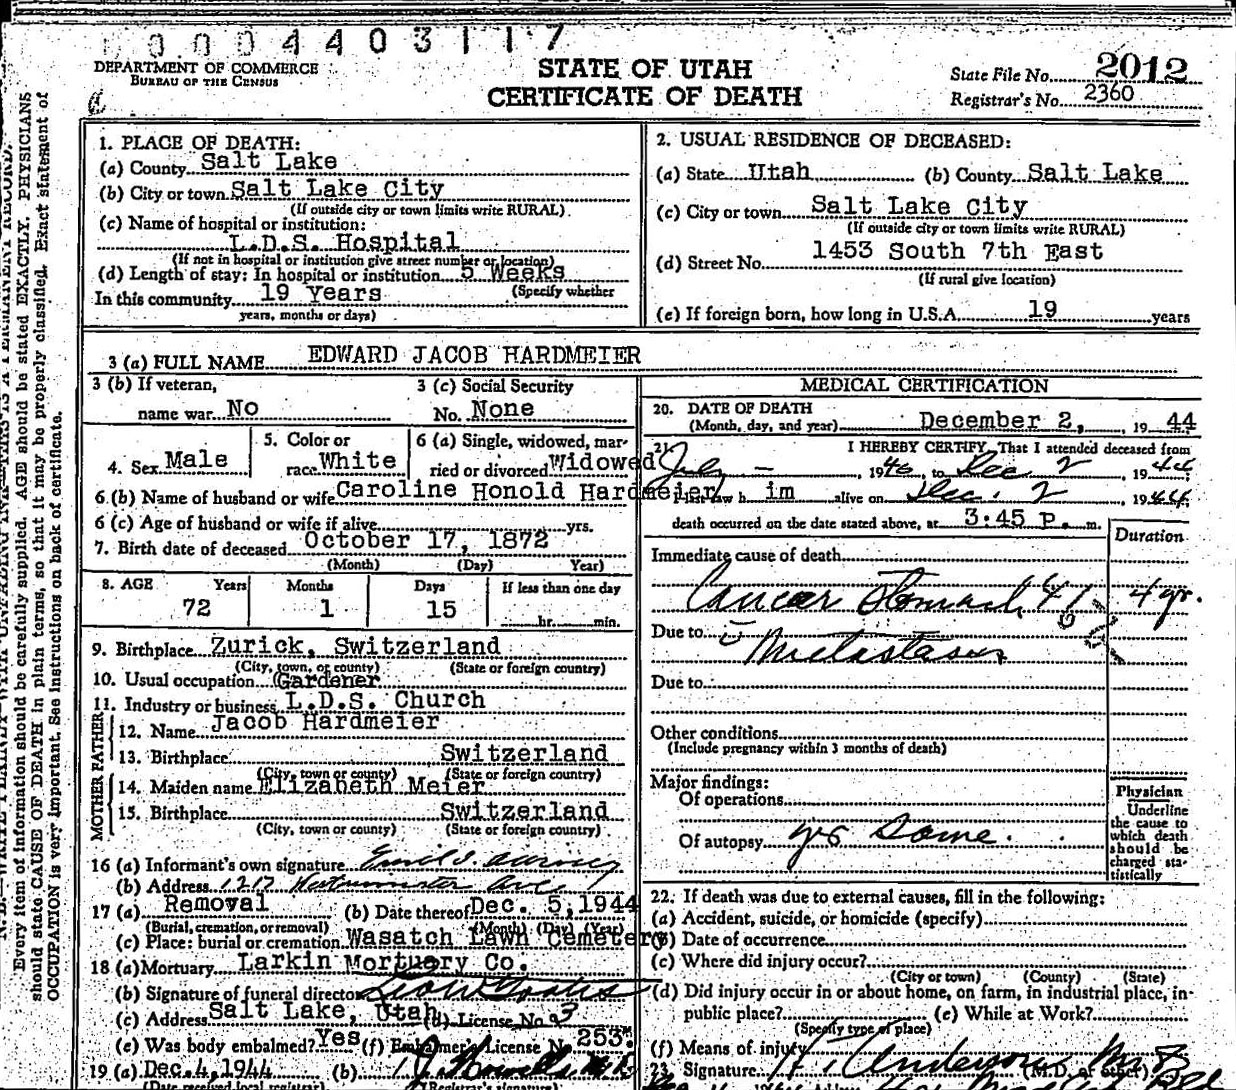 0004403117
DEPARTMENT OF COMMERCE
BUREAU OF THE CENSUS
STATE OF UTAH
CERTIFICATE OF DEATH
State File No. 2012
Registrar's No. 2360
Every item of information should be carefully supplied. AGE should be stated EXACTLY. PHYSICIANS
should state CAUSE OF DEATH in plain terms, so that it may be properly classified. Exact statement of
OCCUPATION is very important. See instructions on back of certificate.
1. PLACE OF DEATH:
(a) County Salt Lake
(b) City or town Salt Lake City
(If outside city or town limits write RURAL)
(c) Name of hospital or institution:
L.D.S. Hospital
(If not in hospital or institution give street number or location)
(d) Length of stay: In hospital or institution 5 Weeks
(Specify whether
In this community 19 Years
years, months or days)
2. USUAL RESIDENCE OF DECEASED:
(a) State Utah (b) County Salt Lake
(c) City or town Salt Lake City
(If outside city or town limits write RURAL)
(d) Street No. 1453 South 7th East
(If rural give location)
(e) If foreign born, how long in U.S.A. 19 years
3 (a) FULL NAME EDWARD JACOB HARDMEIER
3 (b) If veteran,
name war No
3 (c) Social Security
No. None
4. Sex Male
5. Color or
race White
6 (a) Single, widowed, mar-
ried or divorced Widowed
6 (b) Name of husband or wife Caroline Honold Hardmeier
6 (c) Age of husband or wife if alive yrs.
7. Birth date of deceased October 17, 1872
(Month) (Day) Year)
8. AGE Years Months Days If less than one day
72 1 15 hr. min.
9. Birthplace Zurick, Switzerland
(City, town, or county) (State or foreign country)
10. Usual occupation Gardener
11. Industry or business L.D.S. Church
FATHER
12. Name Jacob Hardmeier
13. Birthplace Switzerland
(City, town or county) (State or foreign country)
MOTHER
14. Maiden name Elizabeth Meier
15. Birthplace Switzerland
(City, town or county) (State or foreign country)
16 (a) Informant's own signature
(b) Address 1217 Westminster Ave
17 (a) Removal (b) Date thereof Dec. 5, 1944
(Burial, cremation, or removal) (Month) (Day) (Year)
(c) Place: burial or cremation Wasatch Lawn Cemetery
18 (a) Mortuary Larkin Mortuary Co.
(b) Signature of funeral director
(c) Address Salt Lake, Utah (d) License No. 93
(e) Was body embalmed? Yes (f) Embalmer's License N 253
19 (a) Dec. 4, 1944 (b)
(Date received local registrar) (Registrar's signature)
MEDICAL CERTIFICATION
20. DATE OF DEATH
(Month, day, and year) December 2, 19 44
21. I HEREBY CERTIFY, That I attended deceased from
July - 1940, to Dec 2, 1944
I last saw h im alive on Dec. 2 1944
death occurred on the date stated above, at 3:45 P. m.
Duration
Immediate cause of death
Cancer Stomach 4 yr.
Due to c̄ Metastases
Due to
Other conditions
(Include pregnancy within 3 months of death)
Major findings:
Of operations
Of autopsy yes Same.
Physician
Underline
the cause to
which death
should be
charged sta-
tistically
22. If death was due to external causes, fill in the following:
(a) Accident, suicide, or homicide (specify)
(b) Date of occurrence
(c) Where did injury occur?
(City or town) (County) (State)
(d) Did injury occur in or about home, on farm, in industrial place, in
public place? (e) While at Work?
(Specify type of place)
(f) Means of injury
23. Signature Anderson M.D.
(M.D. or other)